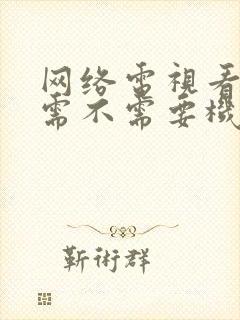 网络電視看
需不需要機
靳術群